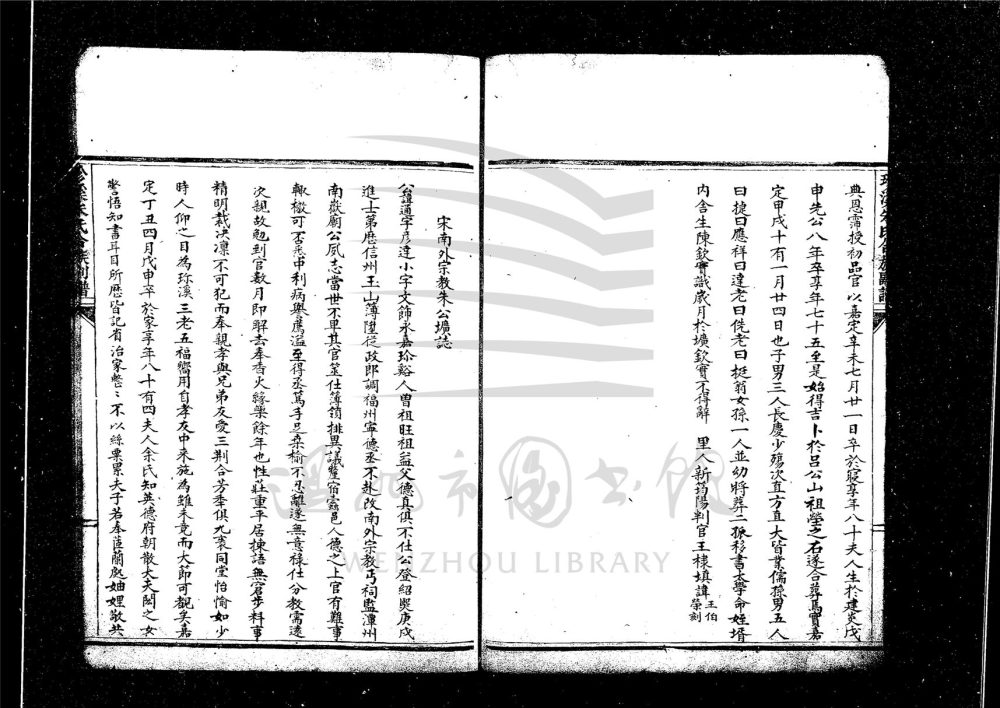 典恩霈授初品官以嘉定辛未七月廿一日卒於寢享年八十夫人生於建炎戊
申先公八年卒享年七十五至是始得吉卜於呂公山祖塋之右遂合葬焉實嘉
定甲戌十有一月廿四日也子男三人長慶少殤次直方直大皆業儒孫男五人
曰捷曰應祥曰達老曰侁老曰挺翁女孫一人並幼將葬二孤移書太學命姪壻
內舍生陳欽實識歲月於壙欽實不得辭 里人新筠陽判官王棣填諱 王伯榮刻
宋南外宗教朱公壙誌
公諱通字彥達小字文飾永嘉珍谿人曾祖旺祖益父德真俱不仕公登紹熙庚戌
進士第歷信州玉山簿陞從政郎調福州寧德丞不赴改南外宗教丐祠監潭州
南嶽廟公夙志當世不卑其官筮仕簿領排異議釐宿蠹邑人德之上官有難事
輙檄可否悉中利病舉薦溢至得丞篤手足桑榆不忍離遂無意祿仕分教需遠
次親故勉到官數月即解去奉香火緣樂餘年也性莊重平居揀語無窘步料事
精明裁决凜不可犯而奉親孝與兄弟友愛三荆合芳耋俱九袠同堂怡愉如少
時人仰之目為珎溪三老五福嚮用自孝友中来施為雖未竟而大節可觀矣嘉
定丁丑四月戊申卒於家享年八十有四夫人余氏知英德府朝散大夫閎之女
警悟知書耳目所歷皆記省治家嶅〻不以絲粟累夫子若奉莒蘭處妯娌敬共
珍溪朱氏合族副譜
WENZHOU LIBRARY
溫州市圖書館